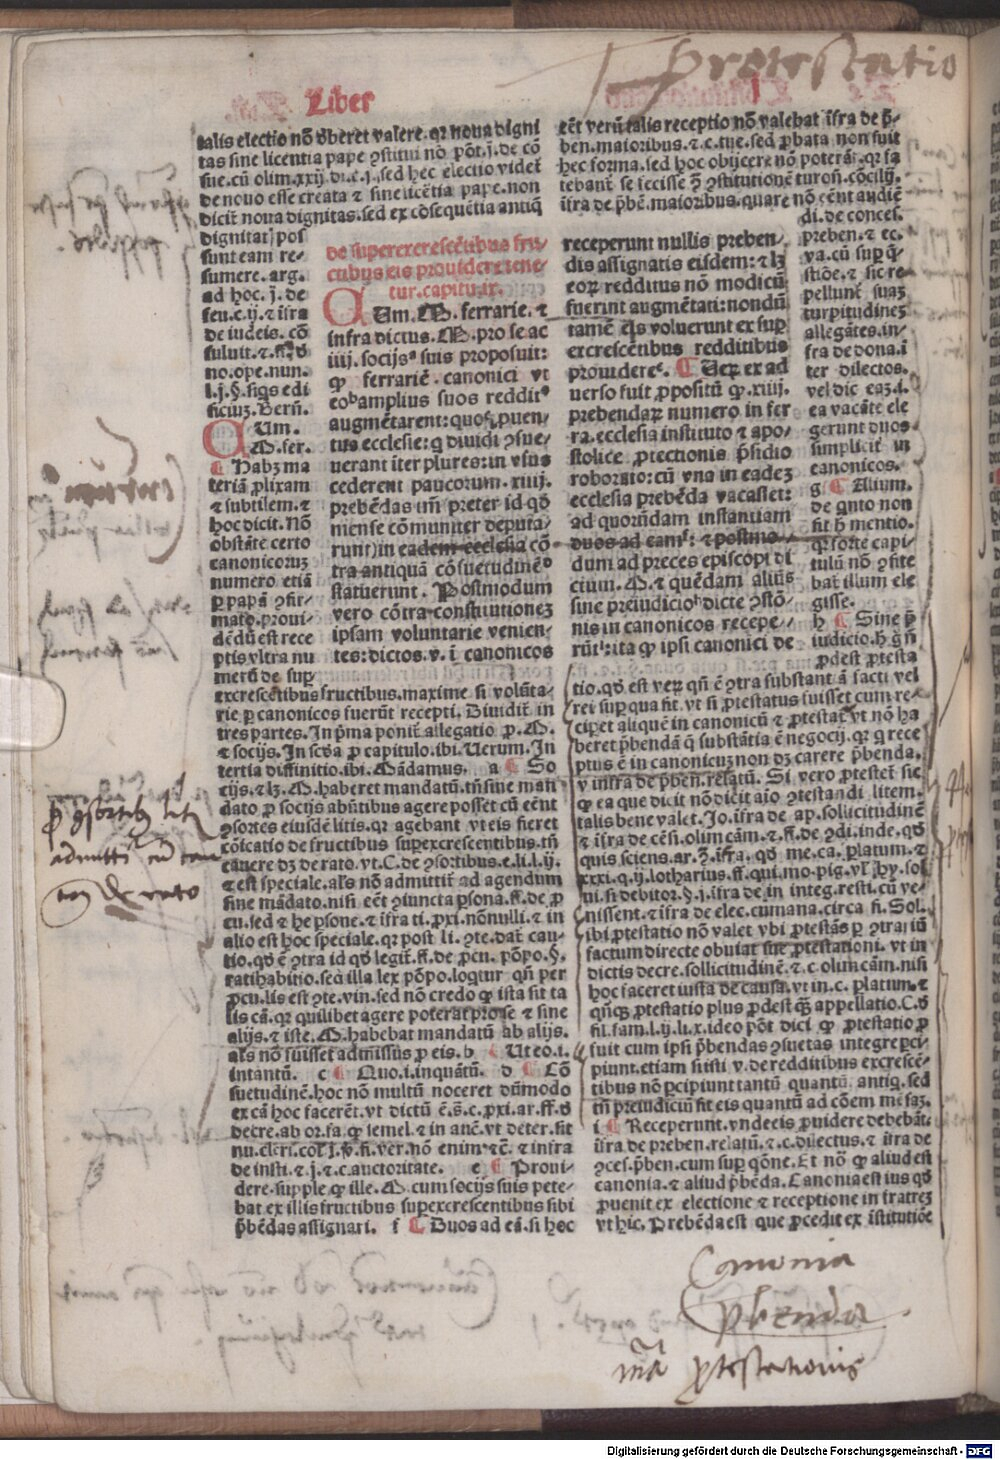 protestatio
Liber
talis electio nõ vberet valere. qr noua digni
tas sine licentia pape ꝯstitui nõ põt. j. de cõ
sue. cũ olim. xxij. di. c. j. sed hec electio videt
de nouo esse creata ⁊ sine licẽtia pape. non
dicit noua dignitas. sed ex cõsequẽtia antiq̃
dignitat pos
sunt eam re-
sumere. arg.
ad hoc. j. de
feu. c. ij. ⁊ ifra
de iudeis. cõ
suluit. ⁊. ff. d
no. ope. nun.
l. j. §. siqs edi
ficiuz. Bern̄.
QUm.
M. fer.
¶ Habz ma
teriã plixam
⁊ subtilem. ⁊
hoc dicit. Nõ
obstãte certo
canonicoruz
numero etiã
ꝑ papã ꝯfir-
mato. proui-
dẽdũ est rece
ptis vltra nu
merũ de suꝑ
excrescẽtibus fructibus. maxime si volũta-
rie ꝑ canonicos fuerũt recepti. Diuidit in
tres partes. In p̃ma ponit allegatio ꝓ. M.
⁊ socijs. In scda ꝓ capitulo. ibi. Uerum. In
tertia diffinitio. ibi. Mãdamus. a ¶ So
cijs. ⁊ lz. M. haberet mandatũ. tñ sine man
dato ꝓ socijs abñtibus agere posset cũ eẽnt
ꝯsortes eiusdẽ litis. qr agebant vt eis fieret
cõicatio de fructibus supexcrescentibus. tñ
cauere dz de rato. vt. C. de ꝯsortibus. e. li. l. ij.
⁊ est speciale. als nõ admittit ad agendum
sine mãdato. nisi eẽt ꝯiuncta ꝑsona. ff. de ꝓ
cu. sed ⁊ he ꝑsone. ⁊ ifra ti. ꝓxi. nõnulli. ⁊ in
alio est hoc speciale. qr post li. ꝯte. dat cau-
tio. qd ẽ ꝯtra id qd legit. ff. de ꝓcu. põpo. §.
ratihabitio. sed illa lex põpo. loqtur qñ per
ꝓcu. lis est ꝯte. vin. sed nõ credo ꝙ ista fit ta
lis cã. qr quilibet agere poterat pro se ⁊ sine
alijs. ⁊ iste. M. habebat mandatũ ab alijs.
als nõ fuisset admissus ꝓ eis. b ¶ Ut eo. i.
intantũ. c ¶ Quo. i. inquãtũ. d ¶ Cõ
suetudinẽ. hoc nõ multũ noceret dũmodo
ex cã hoc facerẽt. vt dictũ ẽ. s. c. ꝓxi. ar. ff. d
decre. ab or. fa. ꝙ semel. ⁊ in anẽ. vt deter. fit
nu. cleri. col. j. §. fi. ver. nõ enim. ⁊c̃. ⁊ infra
de insti. ⁊. j. ⁊. c. auctoritate. e ¶ Proui-
dere. supple ꝙ ille. M. cum socijs suis pete-
bat ex illis fructibus supexcrescentibus sibi
p̃bẽdas assignari. f ¶ Duos ad eã. si hoc
de superexcrescẽtibus fru-
ctibus eis prouidere tene-
tur. capitu. ix.
QUm. M. ferrarie. ⁊
infra dictus. M. pro se ac
iiij. socijs suis proposuit:
ꝙ ferrariẽ. canonici vt
eo amplius suos reddit
augmẽtarent: quos ꝓuen-
tus ecclesie: q diuidi ꝯsue-
uerant iter plures: in vsus
cederent paucorum. xiiij.
prebẽdas im̃ preter id qd
mense cõmuniter deputa-
runt) in eadem ecclesia cõ
tra antiquã cõsuetudinẽ
statuerunt. Postmodum
vero cõtra constitutionez
ipsam voluntarie venien-
tes: dictos. v. ĩ canonicos
receperunt nullis preben-
dis assignatis eisdem: ⁊ lz
eoꝝ redditus nõ modicũ
fuerint augmẽtati: nondũ
tamẽ eis voluerunt ex suꝑ
excrescẽtibus redditibus
prouidere. ¶ Ueꝝ ex ad
uerso fuit ꝓpositũ ꝙ. xiiij.
prebendaꝝ numero in fer
ra. ecclesia instituto ⁊ apo-
stolice ꝓtectionis p̃sidio
roborato: cũ vna in eadez
ecclesia prebẽda vacasset:
ad quorũdam instantiam
duos ad eam: ⁊ postmo-
dum ad preces episcopi di
ctum. M. ⁊ quẽdam alius
sine preiudicio dicte ꝯstõ-
nis in canonicos recepe-
rũt: ita ꝙ ipsi canonici de
eẽt verũ talis receptio nõ valebat ĩfra de p̃-
ben. maioribus. ⁊. c. tue. sed ꝓbata non fuit
hec forma. sed hoc obijcere nõ poterãt. qr fa
tebant se fecisse ꝯ̃ ꝯstitutionẽ turon̄. cõcilij.
ĩfra de p̃bẽ. maioribus. quare nõ eẽnt audiẽ
di. de conces.
preben. ⁊ ec.
va. cũ suꝑ q̃-
stiõe. ⁊ sic re-
pellunt suaz
turpitudinez
allegãtes. in-
fra de dona. ĩ
ter dilectos.
vel dic eaz. 4.
ea vacãte ele
gerunt duos
simplicit in
canonicos.
g ¶ Alium.
de qnto non
fit h mentio.
qr forte capi-
tulũ nõ ꝯfite
bat illum ele
gisse.
h ¶ Sine p̃
iudicio. h. q̃ñ
ꝓdest ꝓtesta
tio. qd est veꝝ qñ ẽ ꝯtra substantiã facti vel
rei suꝑ qua fit. vt si ꝓtestatus fuisset cum re-
ciꝑet aliquẽ in canonicũ ⁊ ꝓtestat vt nõ ha
beret p̃bendã q̃ substãtia ẽ negocij. qr q rece
ptus ẽ in canonicuz non dz carere p̃benda.
v infra de p̃ben. relatũ. Si vero ꝓtestet sic
ꝙ ea que dicit nõ dicit aio ꝯtestandi litem.
talis bene valet. Jo. ĩfra de ap. sollicitudinẽ
⁊ ĩfra de cẽsi. olim cãm. ⁊. ff. de ꝯdi. inde. qd
quis sciens. ar. ꝯ̃. ĩfra. qd me. ca. ꝑlatum. ⁊
xxxi. q. ij. lotharius. ff. qui. mo. pig. vl hy. sol
ui. si debitor. §. j. ĩfra de in integ. resti. cũ ve-
nissent. ⁊ ĩfra de elec. cumana. circa fi. Sol.
ibi ꝓtestatio nõ valet vbi ꝓtestãs ꝑ ꝯtrariũ
factum directe obuiat sue ꝓtestationi. vt in
dictis decre. sollicitudinẽ. ⁊. c. olim cãm. nisi
hoc faceret iusta de causa. vt in. c. ꝑlatum. ⁊
qñqꝫ ꝓtestatio plus ꝓdest q̃ꝫ appellatio. C. d
fil. fam. l. ij. li. x. ideo põt dici ꝙ ꝓtestatio ꝓ
fuit cum ipsi p̃bendas ꝯsuetas integre ꝑci-
piunt. etiam si isti. v. de redditibus excrescẽ-
tibus nõ ꝑcipiunt tantũ quantũ antiq. sed
tñ preiudiciũ fit eis quantũ ad cõem mẽsaz.
i ¶ Receperunt. vndecis ꝓuidere debebãt.
ĩfra de preben. relatũ. ⁊. c. dilectus. ⁊ ĩfra de
ꝯces. p̃ben. cum suꝑ q̃one. Et nõ ꝙ aliud est
canonia. ⁊ aliud p̃bẽda. Canonia est ius qd
ꝓuenit ex electione ⁊ receptione in fratrez
vt hic. Prebẽda est que ꝓcedit ex ĩstitutiõe
ꝓ ꝯsortib lit
admitti cũ cau
tõe de rato
Canonia
p̃benda
mã ꝓtestationis
Digitalisierung gefördert durch die Deutsche Forschungsgemeinschaft - DFG